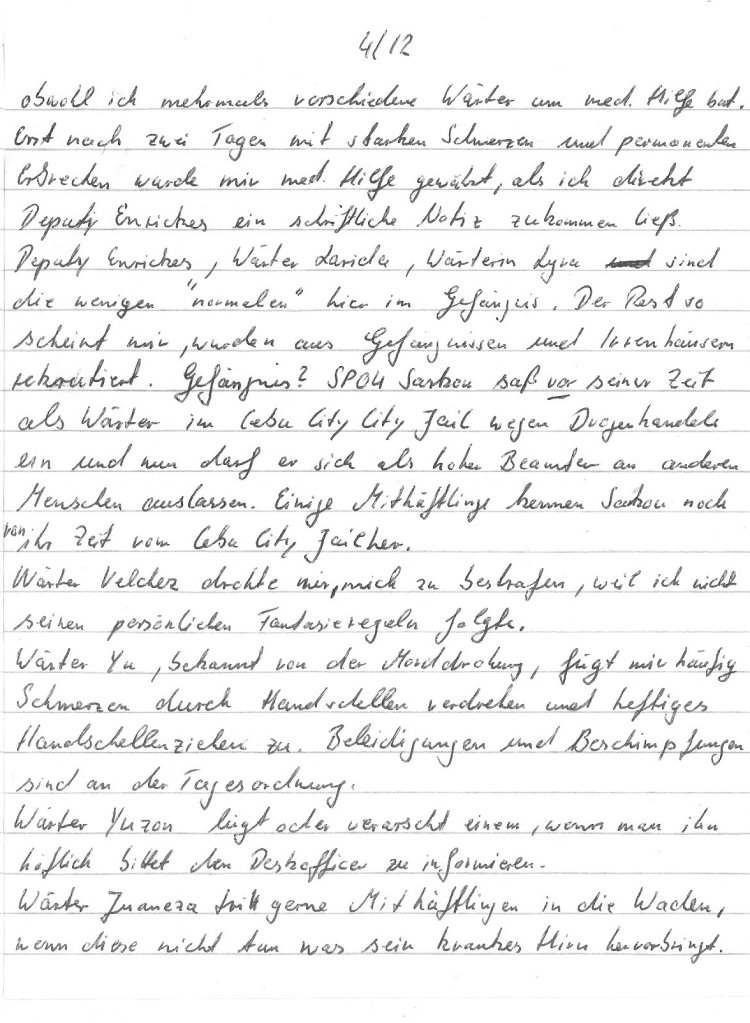 4/12
obwohl ich mehrmals verschiedene Wärter um med. Hilfe bat.
Erst nach zwei Tagen mit starken Schmerzen und permanenten
Erbrechen wurde mir med. Hilfe gewährt, als ich direkt
Deputy Enrickes ein schriftliche Notiz zukommen ließ.
Deputy Enrickes, Wärter Larida, Wärterin Lyra und sind
die wenigen "normalen" hier im Gefängnis. Der Rest so
scheint mir, wurden aus Gefängnissen und Irrenhäusern
rekrutiert. Gefängnis? SPO4 Sarkou saß vor seiner Zeit
als Wärter im Cebu City City Jail wegen Drogenhandels
ein und nun darf er sich als hoher Beamter an anderen
Menschen auslassen. Einige Mithäftlinge kennen Sarkou noch
von ihr Zeit vom Cebu City Jail her.
Wärter Velchez drohte mir, mich zu bestrafen, weil ich nicht
seinen persönlichen Fantasieregeln folgte.
Wärter Yu, bekannt von der Morddrohung, fügt mir häufig
Schmerzen durch Handschellen verdrehen und heftiges
Handschellenziehen zu. Beleidigungen und Beschimpfungen
sind an der Tagesordnung.
Wärter Yuzon lügt oder verarscht einem, wenn man ihn
höflich bittet den Deskofficer zu informieren.
Wärter Juaneza tritt gerne Mithäftlingen in die Waden,
wenn diese nicht tun was sein krankes Hirn hervorbringt.